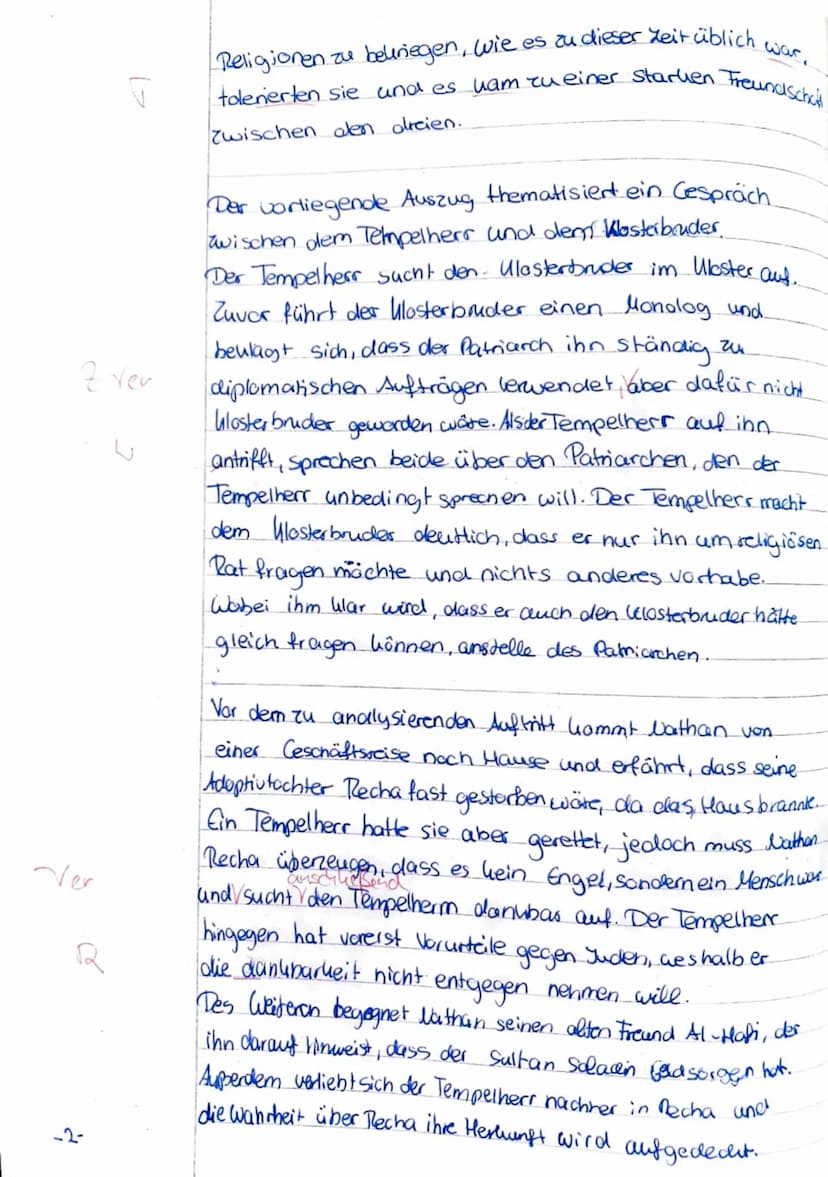 Religionen zu bekriegen, wie es zu dieser Zeit üblich war,
T
tolerierten sie und es kam zu einer starken Freundschaft
zwischen den dreien.
Der vorliegende Auszug thematisiert ein Gespräch
zwischen dem Tempelherr und dem Klosterbruder.
Der Tempelherr sucht den Klosterbruder im Kloster auf.
Zuvor führt der Klosterbruder einen Monolog und
beklagt sich, dass der Patriarch ihn ständig zu
Z ver
diplomatischen Aufträgen verwendet, aber dafür nicht
Klosterbruder geworden wäre. Als der Tempelherr auf ihn
antrifft, sprechen beide über den Patriarchen, den der
Tempelherr unbedingt sprechen will. Der Tempelherr macht
dem Klosterbruder deutlich, dass er nur ihn um religiösen
Rat fragen möchte und nichts anderes vorhabe.
Wobei ihm klar wird, dass er auch den Klosterbruder hätte
gleich fragen können, anstelle des Patriarchen.
Vor dem zu analysierenden Auftritt kommt Nathan von
einer Geschäftsreise nach Hause und erfährt, dass seine
Adoptivtochter Recha fast gestorben wäre, da das Haus brannte.
Ein Tempelherr hatte sie aber gerettet, jedoch muss Nathan
Recha überzeugen, dass es kein Engel, sondern ein Mensch war
Ver
anschließend
und sucht den Tempelherrn dankbar auf. Der Tempelherr
hingegen hat vorerst Vorurteile gegen Juden, weshalb er
R
die dankbarkeit nicht entgegen nehmen will.
Des Weiteren begegnet Nathan seinen alten Freund Al-Hafi, der
ihn darauf hinweist, dass der Sultan Saladin Geldsorgen hat.
Außerdem verliebt sich der Tempelherr nachher in Recha und
die Wahrheit über Recha ihre Herkunft wird aufgedeckt.
-2-